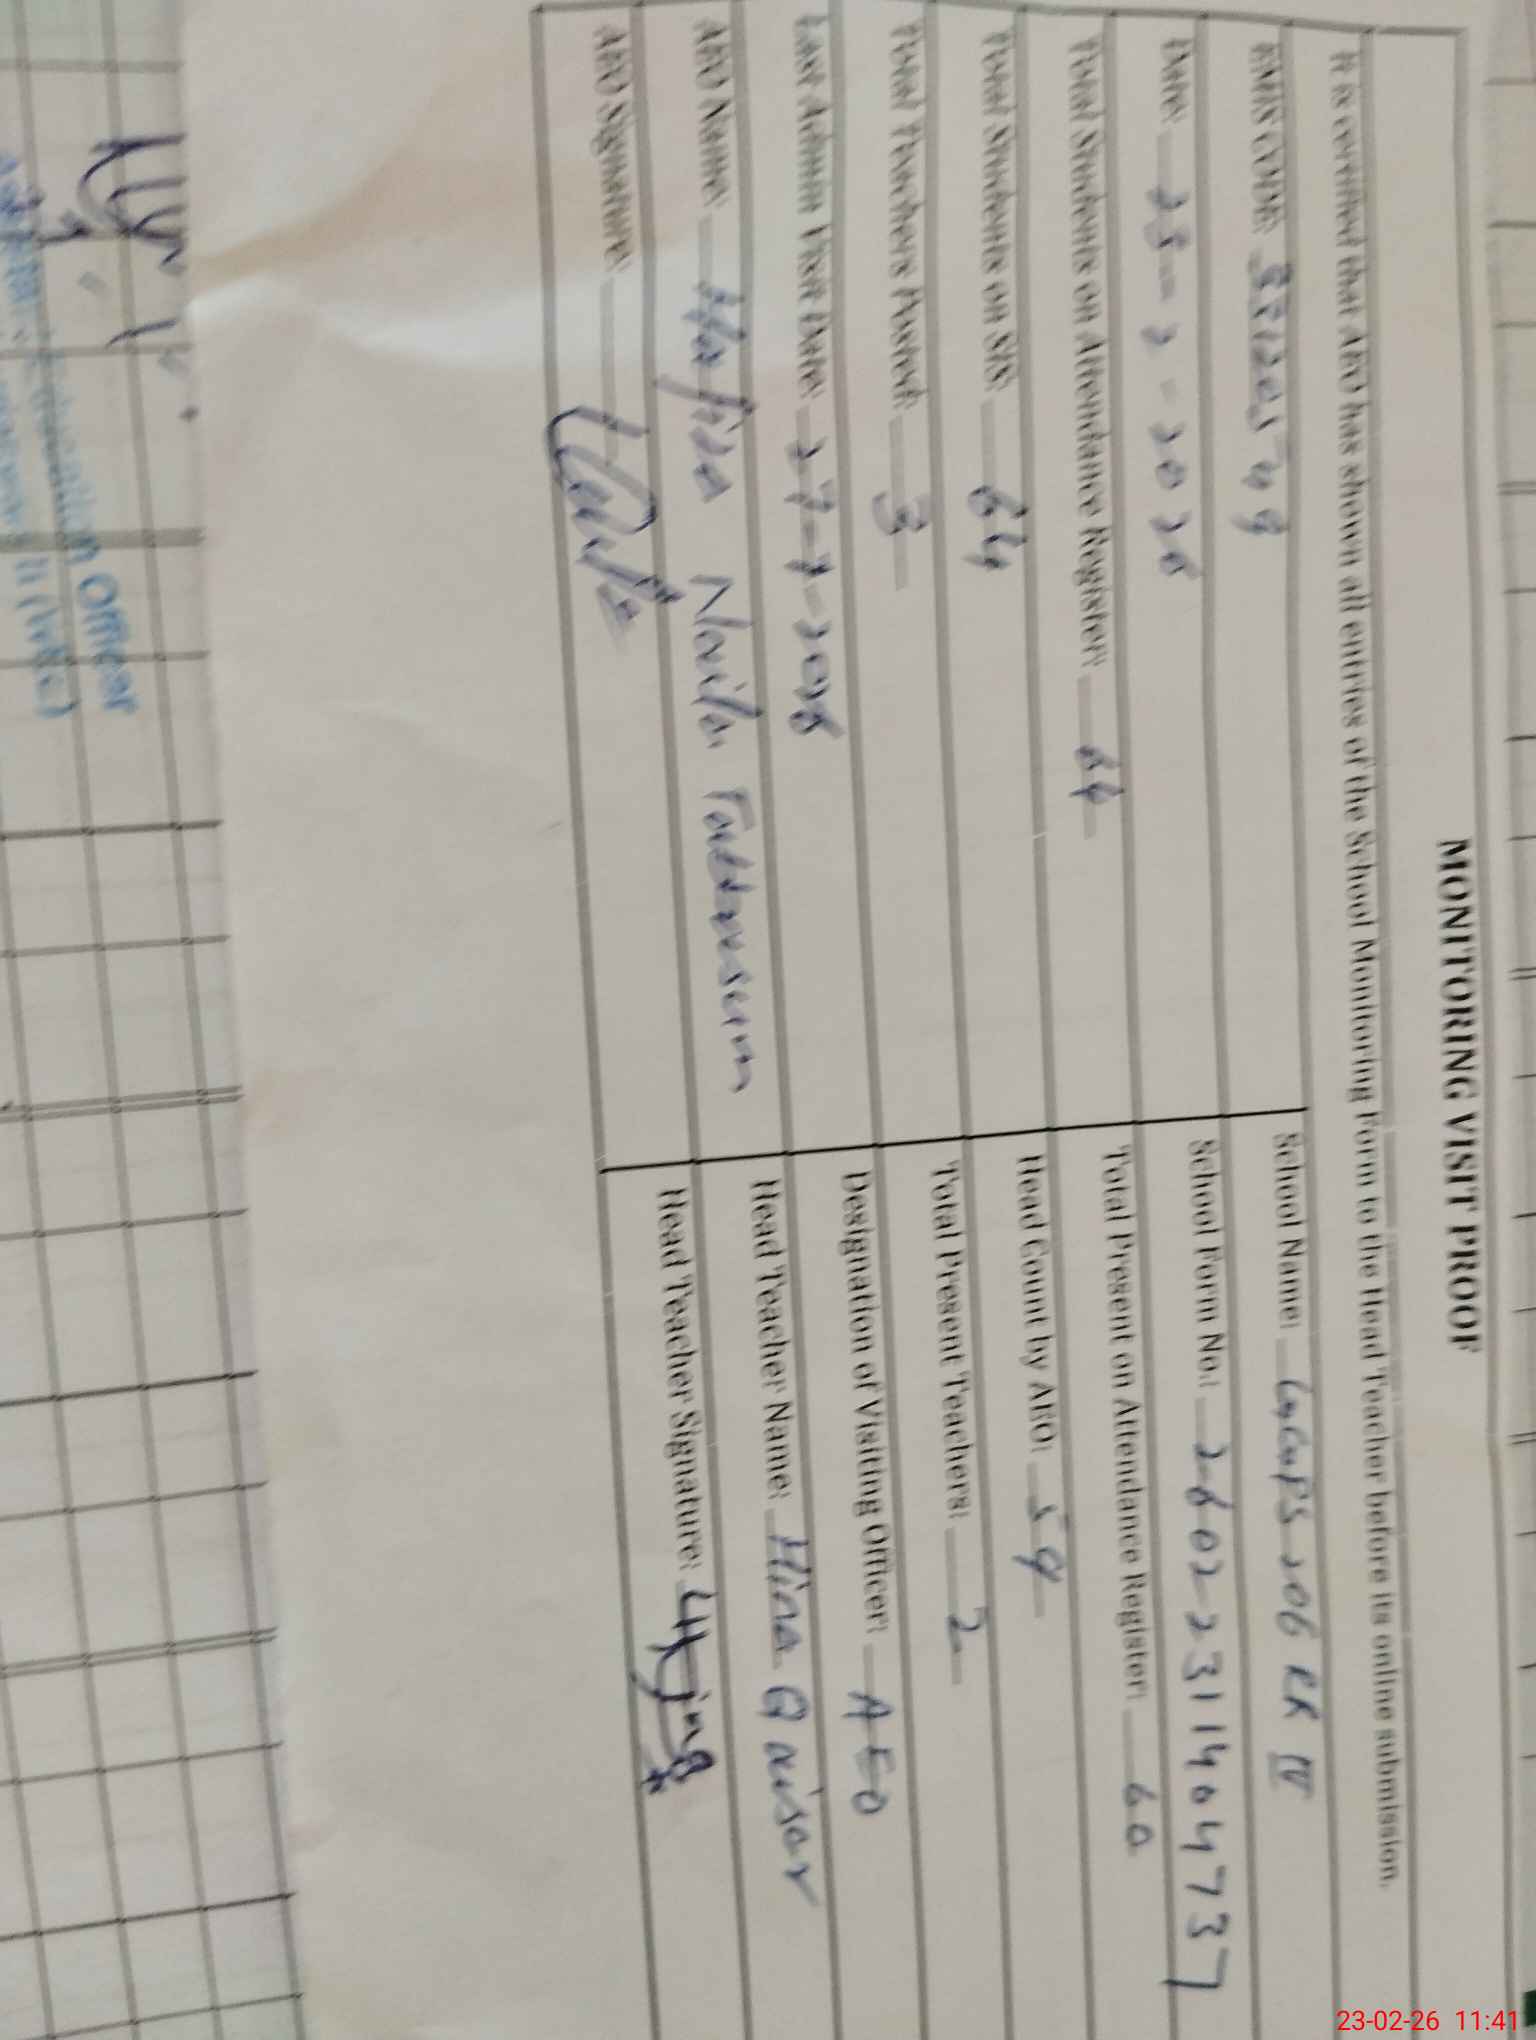 MONITORING VISIT PROOF
It is certified that AEO has shown all entries of the School Monitoring Form to the Head Teacher before its online submission.
EMIS CODE: School Name: GGPS 206 RK IV
Date: 23-2-2026 School Form No.: 26022311404737
Total Students on Attendance Register: 64 Total Present on Attendance Register: 60
Total Students on SIS: 64 Head Count by AEO: 59
Total Teachers Posted: 3 Total Present Teachers: 2
Last Admin Visit Date: Designation of Visiting Officer: AEO
AEO Name: Hafiza Naila Head Teacher Name: Hina Qaisar
AEO Signature: Head Teacher Signature:
Education Officer
23-02-26 11:41